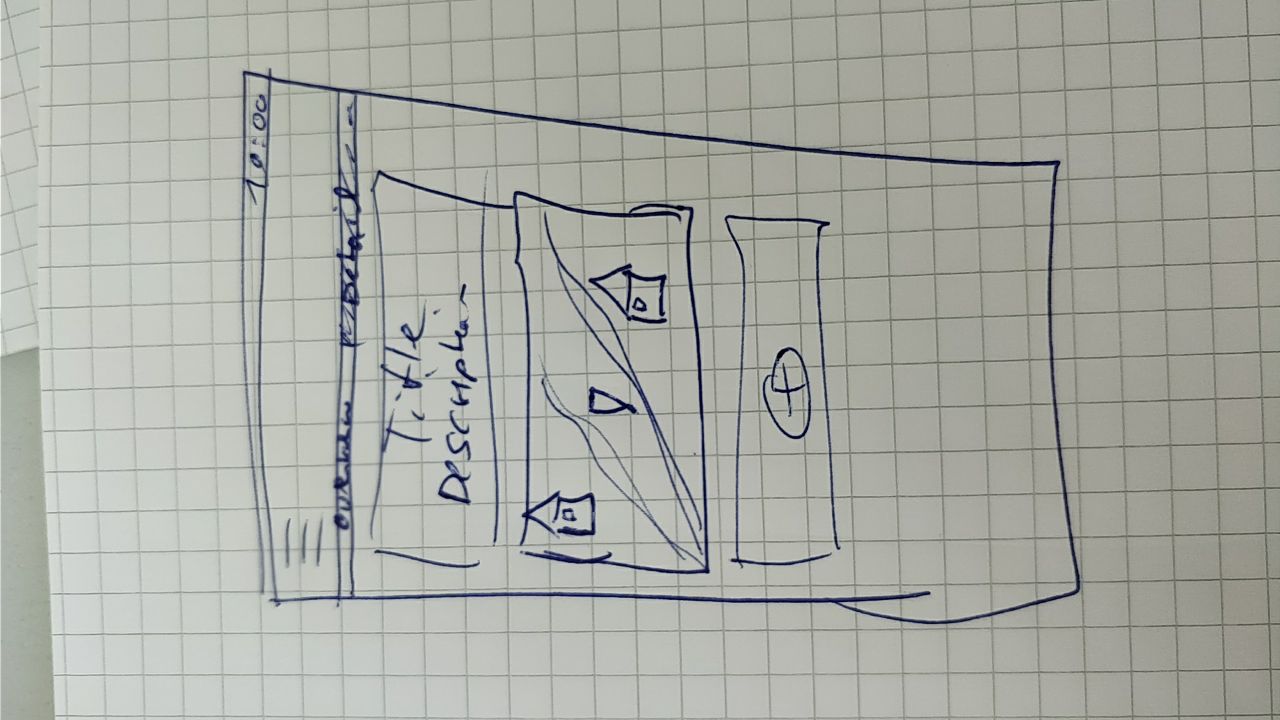 10:00
Overview Details
Title
Description
+